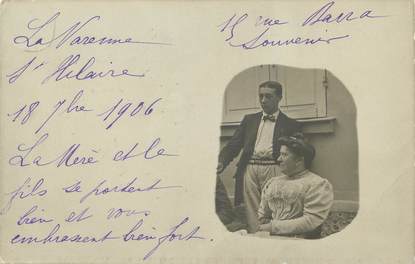 La Varenne
St Hilaire
18 7bre 1906
La Mère et le
fils se portent
bien et vous
embrassent bien fort.
15 rue Barra
Souvenir